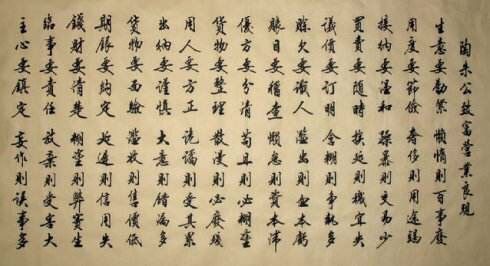 陶朱公致富營業良規
生意要勤緊 懶惰則百事廢
用度要節儉 奢侈則用途竭
接納要溫和 躁暴則交易少
買賣要隨時 挨延則機宜失
議價要訂明 含糊則爭執多
賒欠要識人 濫出則血本虧
賬目要稽查 懶怠則資本滯
優劣要分清 苟且則必糊塗
貨物要整理 散漫則必廢殘
用人要方正 詭譎則受其累
出納要謹慎 大意則錯漏多
貨物要面驗 濫收則售價低
期限要約定 延遲則信用失
錢財要清楚 糊塗則弊竇生
臨事要責任 放棄則受害大
主心要鎮定 妄作則誤事多